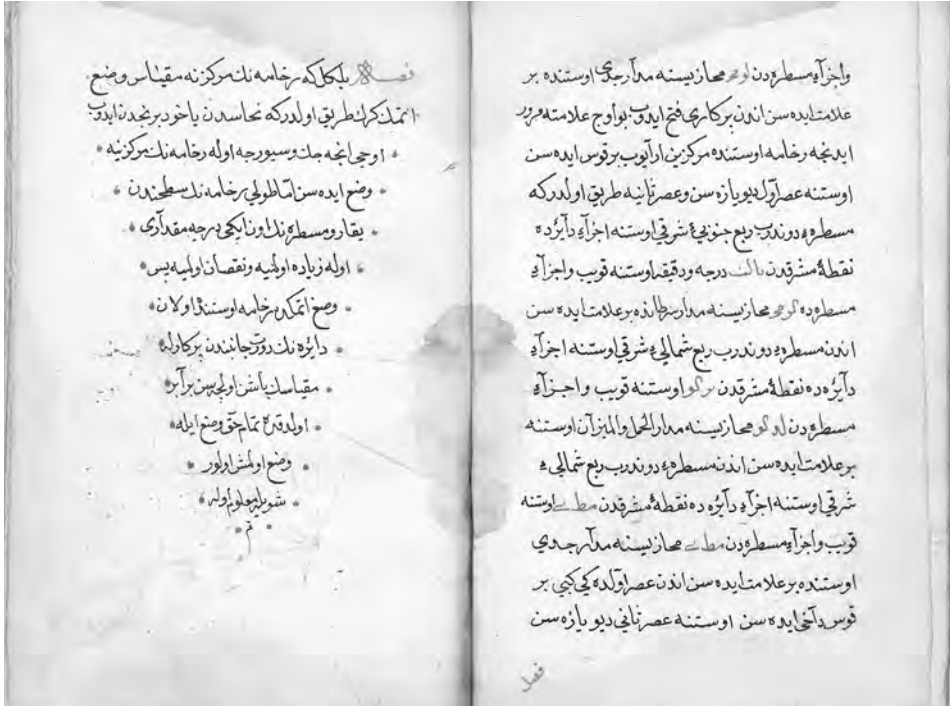 واجزآء مسطره دن لو مح محاذيسنه مدار جدى اوستنده بر
علامت ايده سن اندن بركارى فتح ايدوب بو اوج علامته مرور
ايدنجه رخامه اوستنده مركزين ارايوب بر قوس ايده سن
اوستنه عصر اوّل ديو يازه سن وعصر ثانيه طريق اولدركه
مسطره ء دوندرب ربع جنوبيء شرقي اوستنه اجزآء دآئره ده
نقطهٔ مشرقدن درجه ودقيقه اوستنه قويب واجزآء
مسطره ده محاذيسنه مدار سرطانده بر علامت ايده سن
اندن مسطره ء دوندرب ربع شماليء شرقي اوستنه اجزآء
دآئره ده نقطهٔ مشرقدن اوستنه قويب واجزآء
مسطره دن لد لو محاذيسنه مدار الحمل والميزان اوستنه
بر علامت ايده سن اندن مسطره ء دوندرب ربع شماليء
شرقي اوستنه اجزآء دآئره ده نقطهٔ مشرقدن مط ے اوستنه
قويب واجزآء مسطره دن مط ے محاذيسنه مدار جدي
اوستنده بر علامت ايده سن اندن عصر اوّلده كي كبي بر
قوس دآخي ايده سن اوستنه عصر ثاني ديو يازه سن
فصل
فصل بلكل كه رخامه نك مركزنه مقياس وضع
اتمك كرك طريق اولدركه نحاسدن ياخود برنجدن ايدوب
اوجى انجه جك وسيورجه اوله رخامه نك مركزينه
وضع ايده سن امّا طولي رخامه نك سطحندن
يقارو مسطره نك اون ايكى درجه مقدآرى
اوله زياده اولميه ونقصان اولميه پس
وضع اتمكده رخامه اوستنده اولان
دايره نك دورت جانبندن بركارله
مقياسك باشن اولجه سن برآبر
اولدقده تمام حق وضع ايله
وضع اولمش اولور
شويله معلوم اوله
تم